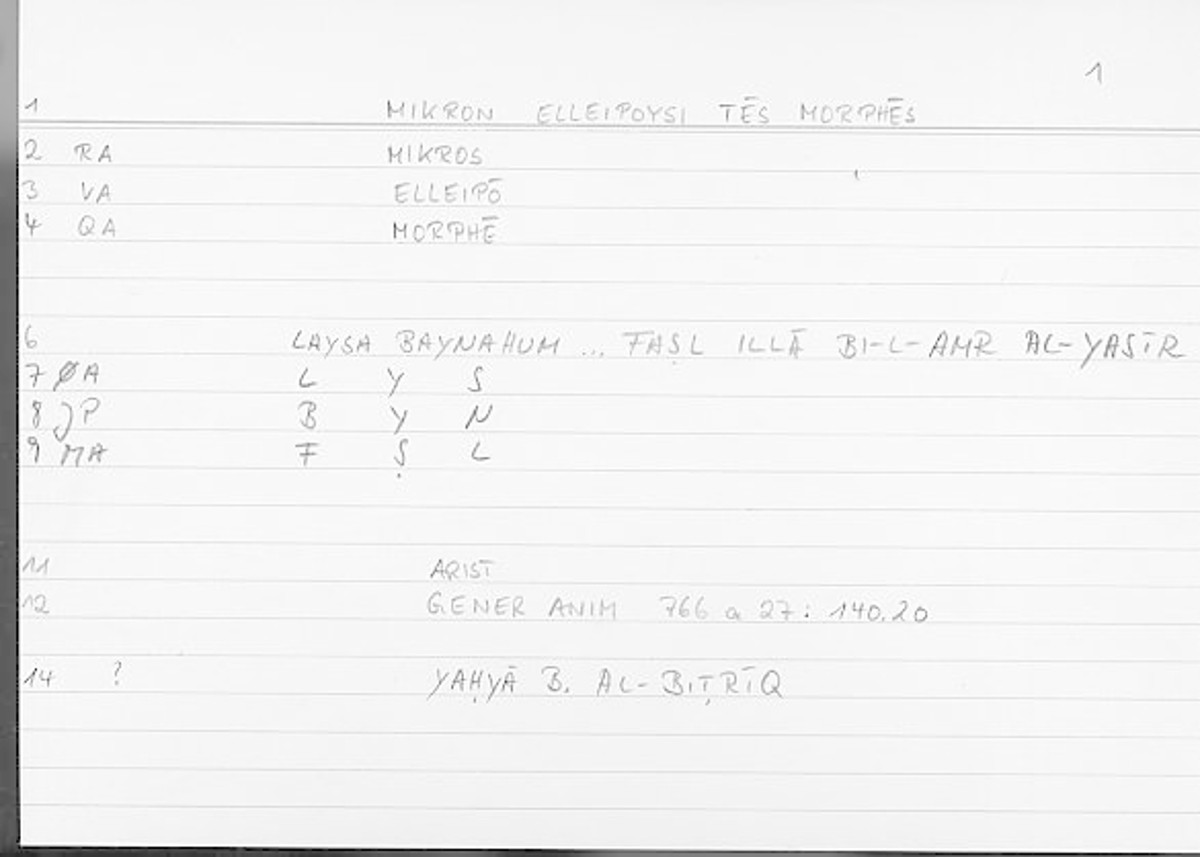 1
1 MIKRON ELLEIPOYSI TĒS MORPHĒS
2 RA MIKROS
3 VA ELLEIPŌ
4 QA MORPHĒ
6 LAYSA BAYNAHUM ... FAṢL ILLĀ BI-L-AMR AL-YASĪR
7 ØA L Y S
8 JP B Y N
9 MA F Ṣ L
11 ARIST
12 GENER ANIM 766 a 27 : 140.20
14 ? YAḤYĀ B. AL-BIṬRĪQ